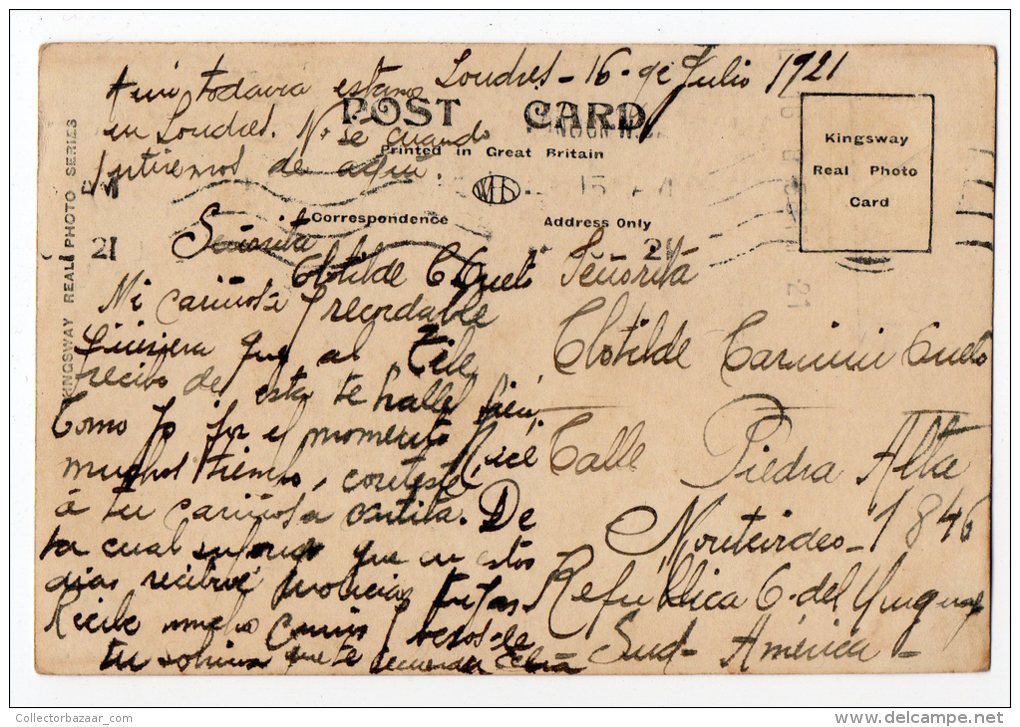 Londres - 16 - de Julio 1921
Aqui todavia estamos
en Londres. No se cuando
de aqui.
POST CARD
Printed in Great Britain
Correspondence
Address Only
Kingsway
Real Photo
Card
KINGSWAY REAL PHOTO SERIES
21
21
21
Señorita
Clotilde C. Cueto
Mi cariñosa y recordable
que al
recibo de esta te halles bien,
Como yo por el momento
mucho tiempo, conteste
á tu cariñosa cartita. De
la cual supongo que en estos
dias recibiré noticias tuyas.
Recibe mucho cariño y besos de
tu que te recuerda
Señorita
Clotilde Cueto
Calle Piedra Alta
Montevideo - 1846
Republica O. del Uruguay
Sud - América -
Collectorbazaar_com
www.delcampe.net